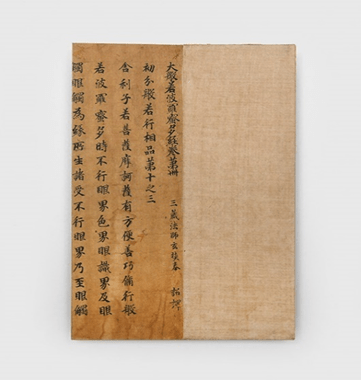 大般若波羅蜜多經卷第卌 三藏法師玄奘奉 詔譯
初分般若行相品第十之三
舍利子若菩薩摩訶薩有方便善巧脩行般
若波羅蜜多時不行眼界色界眼識界及眼
觸眼觸為緣所生諸受不行眼界乃至眼觸